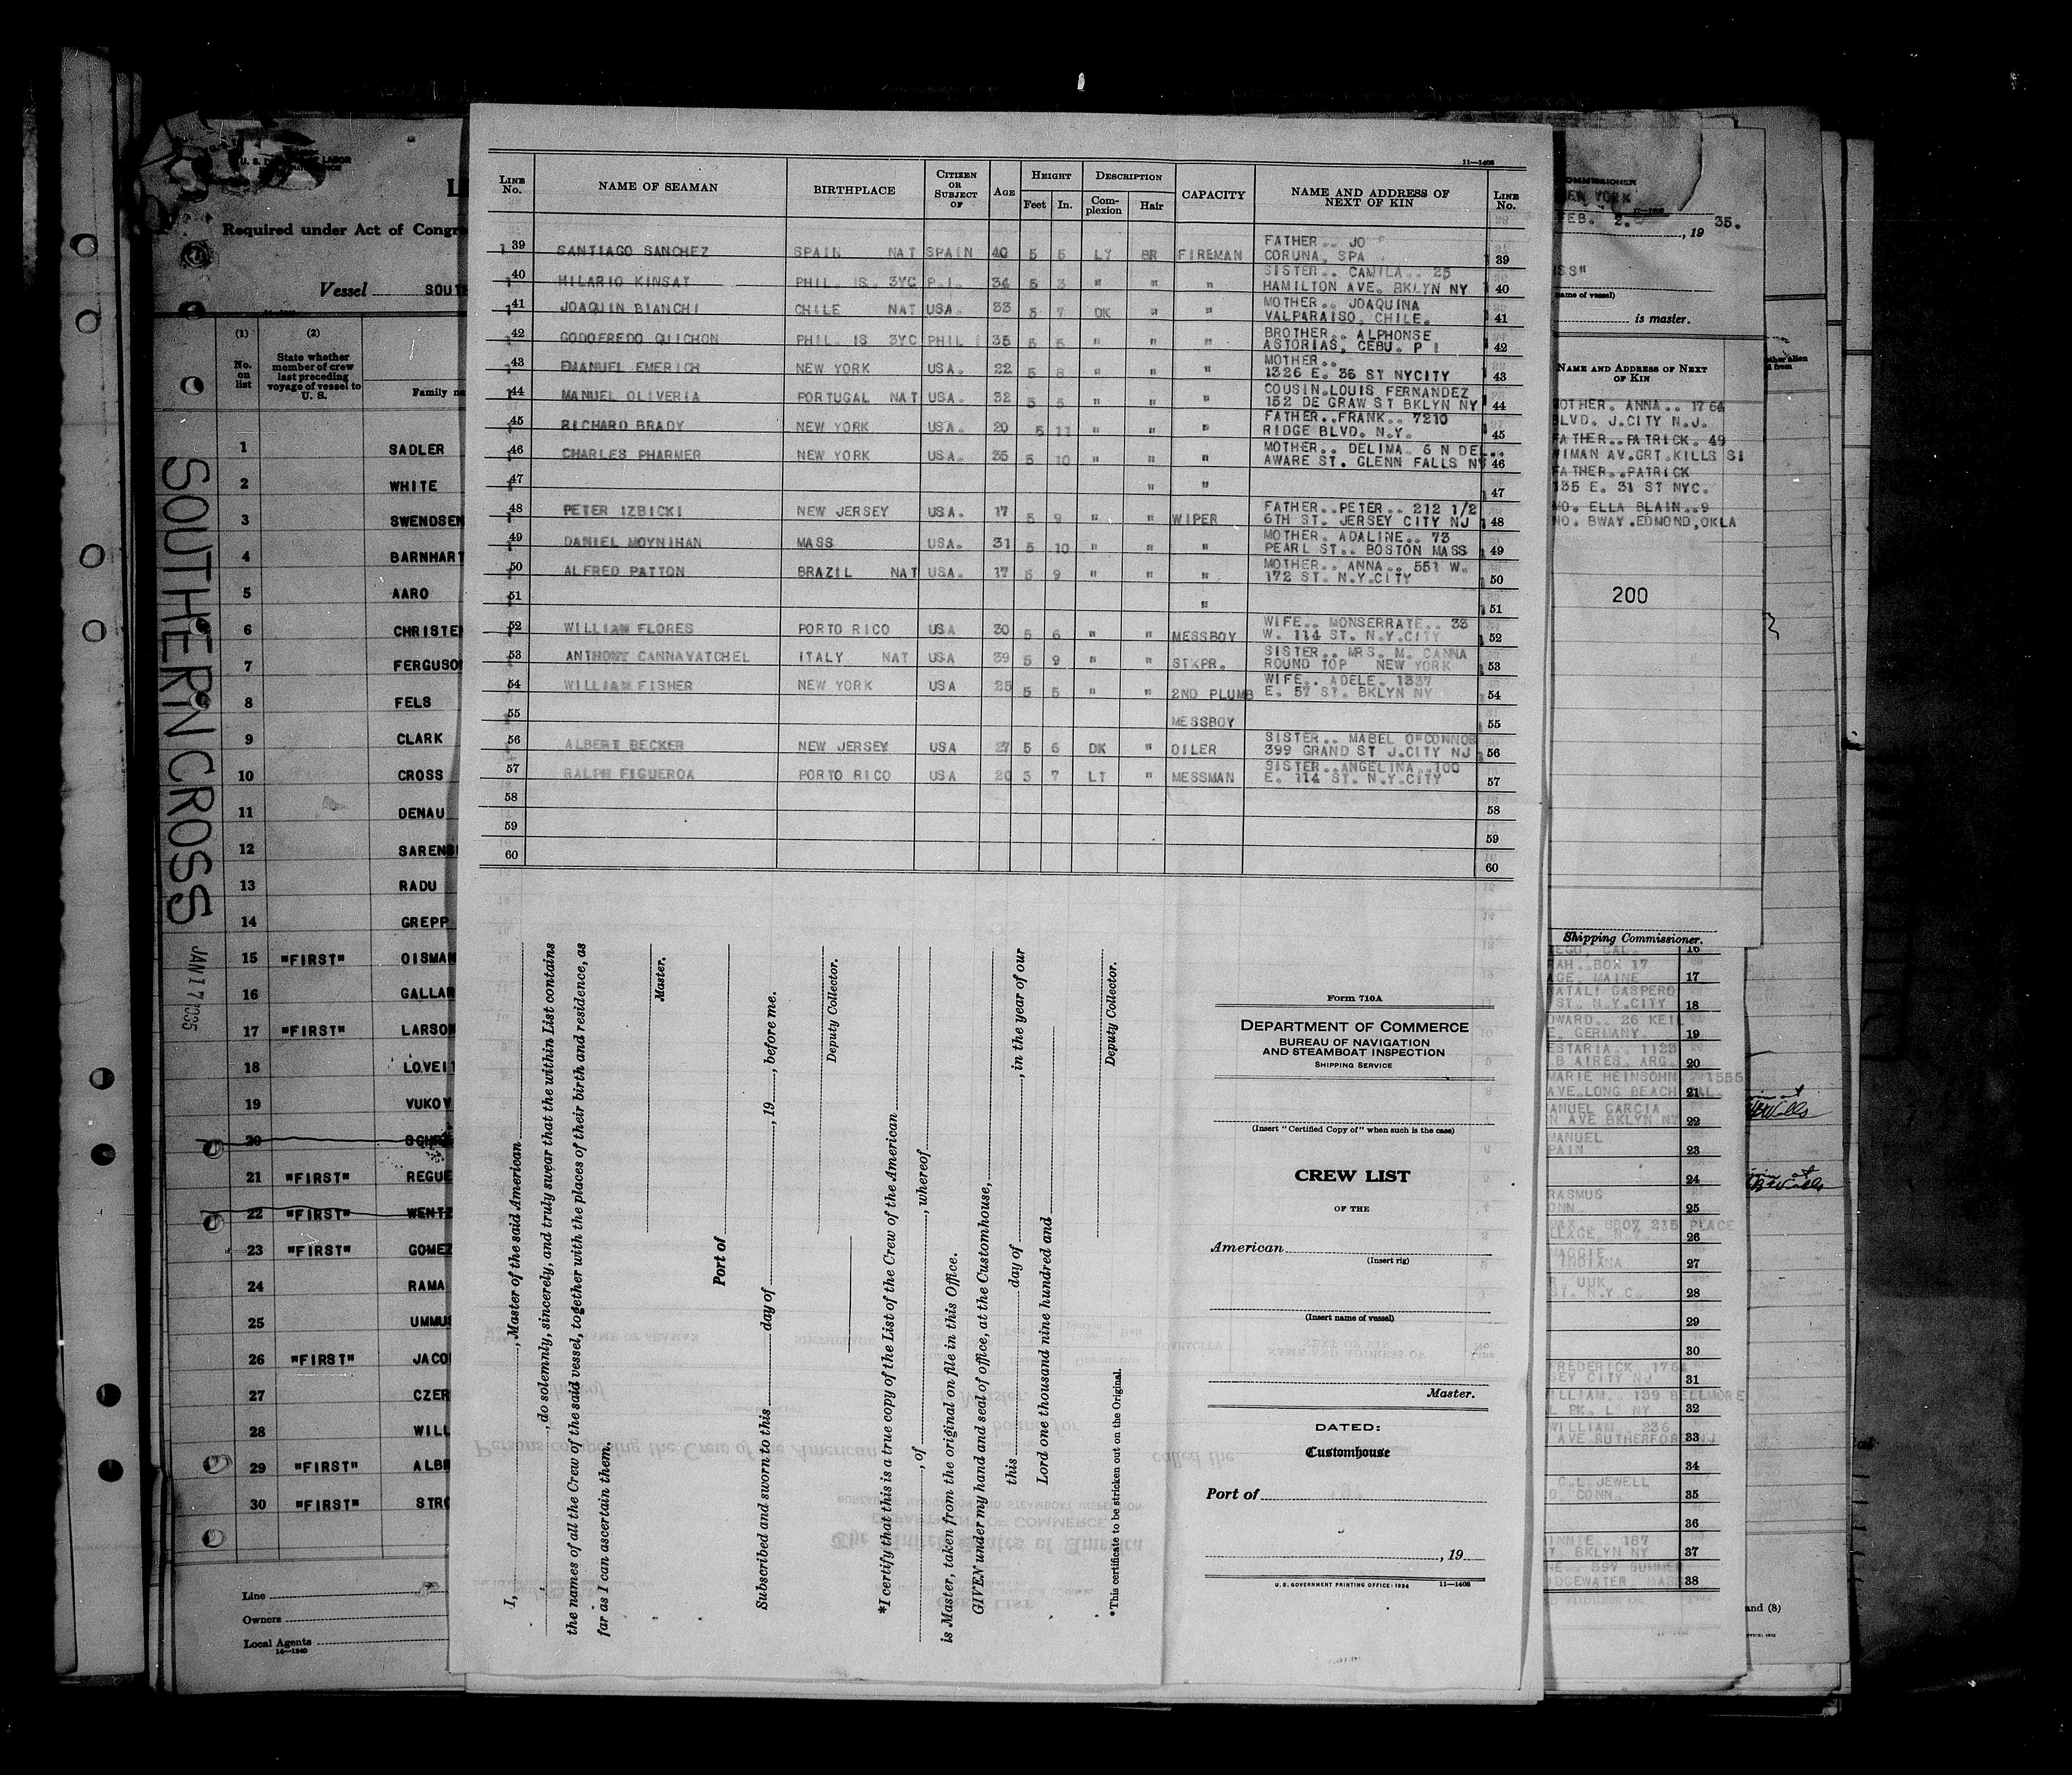 11—1408
LINE No. NAME OF SEAMAN BIRTHPLACE CITIZEN OR SUBJECT OF AGE HEIGHT Feet In. DESCRIPTION Complexion Hair CAPACITY NAME AND ADDRESS OF NEXT OF KIN LINE No.
39 SANTIAGO SANCHEZ SPAIN NAT SPAIN 40 5 5 LT BR FIREMAN FATHER.. JO
CORUNA, SPA 39
40 HILARIO KINSAT PHIL. IS. 3YC P.I. 34 5 3 " " " SISTER.. CAMILA.. 25
HAMILTON AVE. BKLYN NY 40
41 JOAQUIN BIANCHI CHILE NAT USA. 33 5 7 DK " " MOTHER.. JOAQUINA
VALPARAISO, CHILE. 41
42 GODOFREDO QUICHON PHIL. IS 3YC PHIL I 35 5 5 " " " BROTHER.. ALPHONSE
ASTORIAS, CEBU. P I 42
43 EMANUEL EMERICH NEW YORK USA. 22 5 8 " " " MOTHER..
1326 E. 36 ST NYCITY 43
44 MANUEL OLIVERIA PORTUGAL NAT USA. 32 5 5 " " " COUSIN.LOUIS FERNANDEZ
152 DE GRAW ST BKLYN NY 44
45 RICHARD BRADY NEW YORK USA. 20 5 11 " " " FATHER..FRANK.. 7210
RIDGE BLVD. N.Y. 45
46 CHARLES PHARMER NEW YORK USA. 35 5 10 " " " MOTHER.. DELIMA. 6 N DEL..
AWARE ST. GLENN FALLS NY 46
47 " " 47
48 PETER IZBICKI NEW JERSEY USA. 17 5 9 " " WIPER FATHER..PETER.. 212 1/2
6TH ST. JERSEY CITY NJ 48
49 DANIEL MOYNIHAN MASS USA. 31 5 10 " " " MOTHER. ADALINE.. 73
PEARL ST.. BOSTON MASS 49
50 ALFRED PATTON BRAZIL NAT USA. 17 5 9 " " " MOTHER.. ANNA.. 551 W.
172 ST. N.Y.CITY 50
51 " 51
52 WILLIAM FLORES PORTO RICO USA 30 5 6 " " MESSBOY WIFE.. MONSERRATE.. 33
W. 114 ST. N.Y.CITY 52
53 ANTHONY CANNAVATCHEL ITALY NAT USA 39 5 9 " " STKPR. SISTER.. MRS. M. CANNA
ROUND TOP NEW YORK 53
54 WILLIAM FISHER NEW YORK USA 25 5 5 " " 2ND PLUMB WIFE.. ADELE. 1337
E. 57 ST. BKLYN NY 54
55 MESSBOY 55
56 ALBERT BECKER NEW JERSEY USA 27 5 6 DK " OILER SISTER.. MABEL O'CONNOR
399 GRAND ST J.CITY NJ 56
57 RALPH FIGUEROA PORTO RICO USA 20 5 7 LT " MESSMAN SISTER..ANGELINA..100
E. 114 ST. N.Y.CITY 57
58 58
59 59
60 60
I, , Master of the said American
, do solemnly, sincerely, and truly swear that the within List contains
the names of all the Crew of the said vessel, together with the places of their birth and residence, as
far as I can ascertain them.
Master.
Port of
Subscribed and sworn to this day of , 19 , before me.
Deputy Collector.
*I certify that this is a true copy of the List of the Crew of the American
, of , whereof
is Master, taken from the original on file in this Office.
GIVEN under my hand and seal of office, at the Customhouse,
this day of , in the year of our
Lord one thousand nine hundred and
Deputy Collector.
*This certificate to be stricken out on the Original.
Form 710A
DEPARTMENT OF COMMERCE
BUREAU OF NAVIGATION
AND STEAMBOAT INSPECTION
SHIPPING SERVICE
(Insert "Certified Copy of" when such is the case)
CREW LIST
OF THE
American
(Insert rig)
(Insert name of vessel)
Master.
DATED:
Customhouse
Port of
, 19
U.S. GOVERNMENT PRINTING OFFICE: 1934 11—1408
Required under Act of Congre
Vessel SOUTH
(1) (2)
No. on list
State whether member of crew last preceding voyage of vessel to U. S.
Family na
SOUTHERN CROSS
JAN 17 1935
1 SADLER
2 WHITE
3 SWENDSEN
4 BARNHART
5 AARO
6 CHRISTE
7 FERGUSO
8 FELS
9 CLARK
10 CROSS
11 DENAU
12 SARENS
13 RADU
14 GREPP
15 "FIRST" OISMAN
16 GALLAR
17 "FIRST" LARSON
18 LOVEIT
19 VUKOV
20 SCHR
21 "FIRST" REGUE
22 "FIRST" WENTZ
23 "FIRST" GOMEZ
24 RAMA
25 UMMUS
26 "FIRST" JACO
27 CZER
28 WILL
29 "FIRST" ALBR
30 "FIRST" STRO
Line
Owners
Local Agents
14—1240
COMMISSIONER
NEW YORK
FEB. 2. , 19 35.
SS"
name of vessel)
is master.
NAME AND ADDRESS OF NEXT OF KIN
MOTHER. ANNA.. 1764
BLVD. J.CITY N.J.
FATHER..PATRICK. 49
WIMAN AV.GRT.KILLS SI
FATHER..PATRICK
135 E. 31 ST NYC.
MO. ELLA BLAIN..9
NO. BWAY.EDMOND,OKLA
200
Shipping Commissioner.
EGO, CAL. 16
RAH..BOX 17
AGE, MAINE 17
NATALI GASPERO
ST. N.Y.CITY 18
DWARD.. 26 KEI
E, GERMANY. 19
ESTARIA.. 1123
B AIRES. ARG. 20
MARIE HEINSOHN 1555
AVE.LONG BEACH CAL. 21
MANUEL GARCIA
N AVE BKLYN NY 22
MANUEL
PAIN 23
24
RASMUS
ONN. 25
MAX.. 8807 215 PLACE
LLAGE, N.Y. 26
MAGGIE
INDIANA 27
R. UUK
ST. N.Y C. 28
29
30
FREDERICK 176
SEY CITY NJ 31
ILLIAM.. 159 BELLMORE
L PK. L NY 32
WILLIAM 236
AVE RUTHERFOR NJ 33
34
C.L. JEWELL
D. CONN. 35
36
INNIE 187
T. BKLYN NY 37
NE.. 397 SUMMER
DGEWATER, MASS 38
and (8)